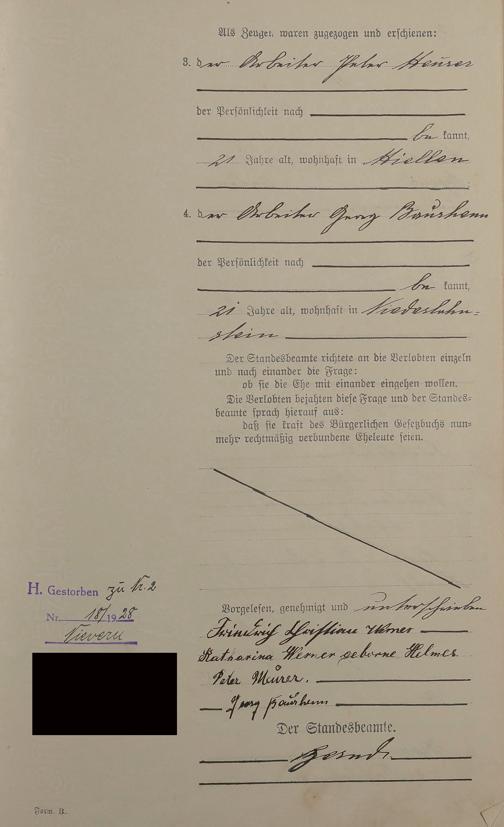 Als Zeugen waren zugezogen und erschienen:
3. der Arbeiter Peter Meurer
der Persönlichkeit nach
be kannt,
21 Jahre alt, wohnhaft in Miellen
4. der Arbeiter Georg Baushenn
der Persönlichkeit nach
be kannt,
21 Jahre alt, wohnhaft in Niederlahn-
stein
Der Standesbeamte richtete an die Verlobten einzeln
und nach einander die Frage:
ob sie die Ehe mit einander eingehen wollen.
Die Verlobten bejahten diese Frage und der Standes-
beamte sprach hierauf aus:
daß sie kraft des Bürgerlichen Gesetzbuchs nun-
mehr rechtmäßig verbundene Eheleute seien.
H. Gestorben zu Nr. 2
Nr. 18/1928
Nievern
Vorgelesen, genehmigt und unterschrieben
Friedrich Christian Werner
Katharina Werner geborne Helmes
Peter Meurer.
Georg Baushenn
Der Standesbeamte.
Form. B.